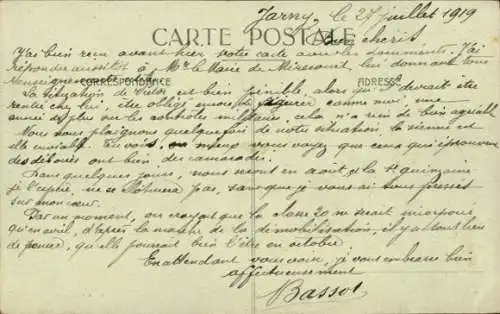 Jarny, le 27 juillet 1919
CARTE POSTALE
Bien chéris
J'ai bien reçu avant hier votre carte avec les documents. J'ai
répondu aussitôt à Mr le Maire de Mirecourt lui donnant tous
renseignements
CORRESPONDANCE
ADRESSE
La situation de est bien pénible, alors qu'il devrait être
rentré chez lui, être obligé encore de comme moi, une
année de plus sur les contrôles militaires, cela n'a rien de bien agréable
Nous nous plaignons quelquefois de notre situation, la sienne est
elle enviable. Tu vois, au mieux vous voyez que ceux qui éprouvent
des déboires ont bien des camarades.
Dans quelques jours, nous serons en août et la 1e quinzaine
je l'espère, ne se passera pas, sans que je vous ai tous pressés
sur mon cœur.
Par un moment, on croyait que la classe 20 ne serait incorporée
qu'en avril, d'après la marche de la démobilisation, il y a tout lieu
de penser, qu'elle pourrait bien l'être en octobre.
En attendant vous voir, je vous embrasse bien
affectueusement
Bassot